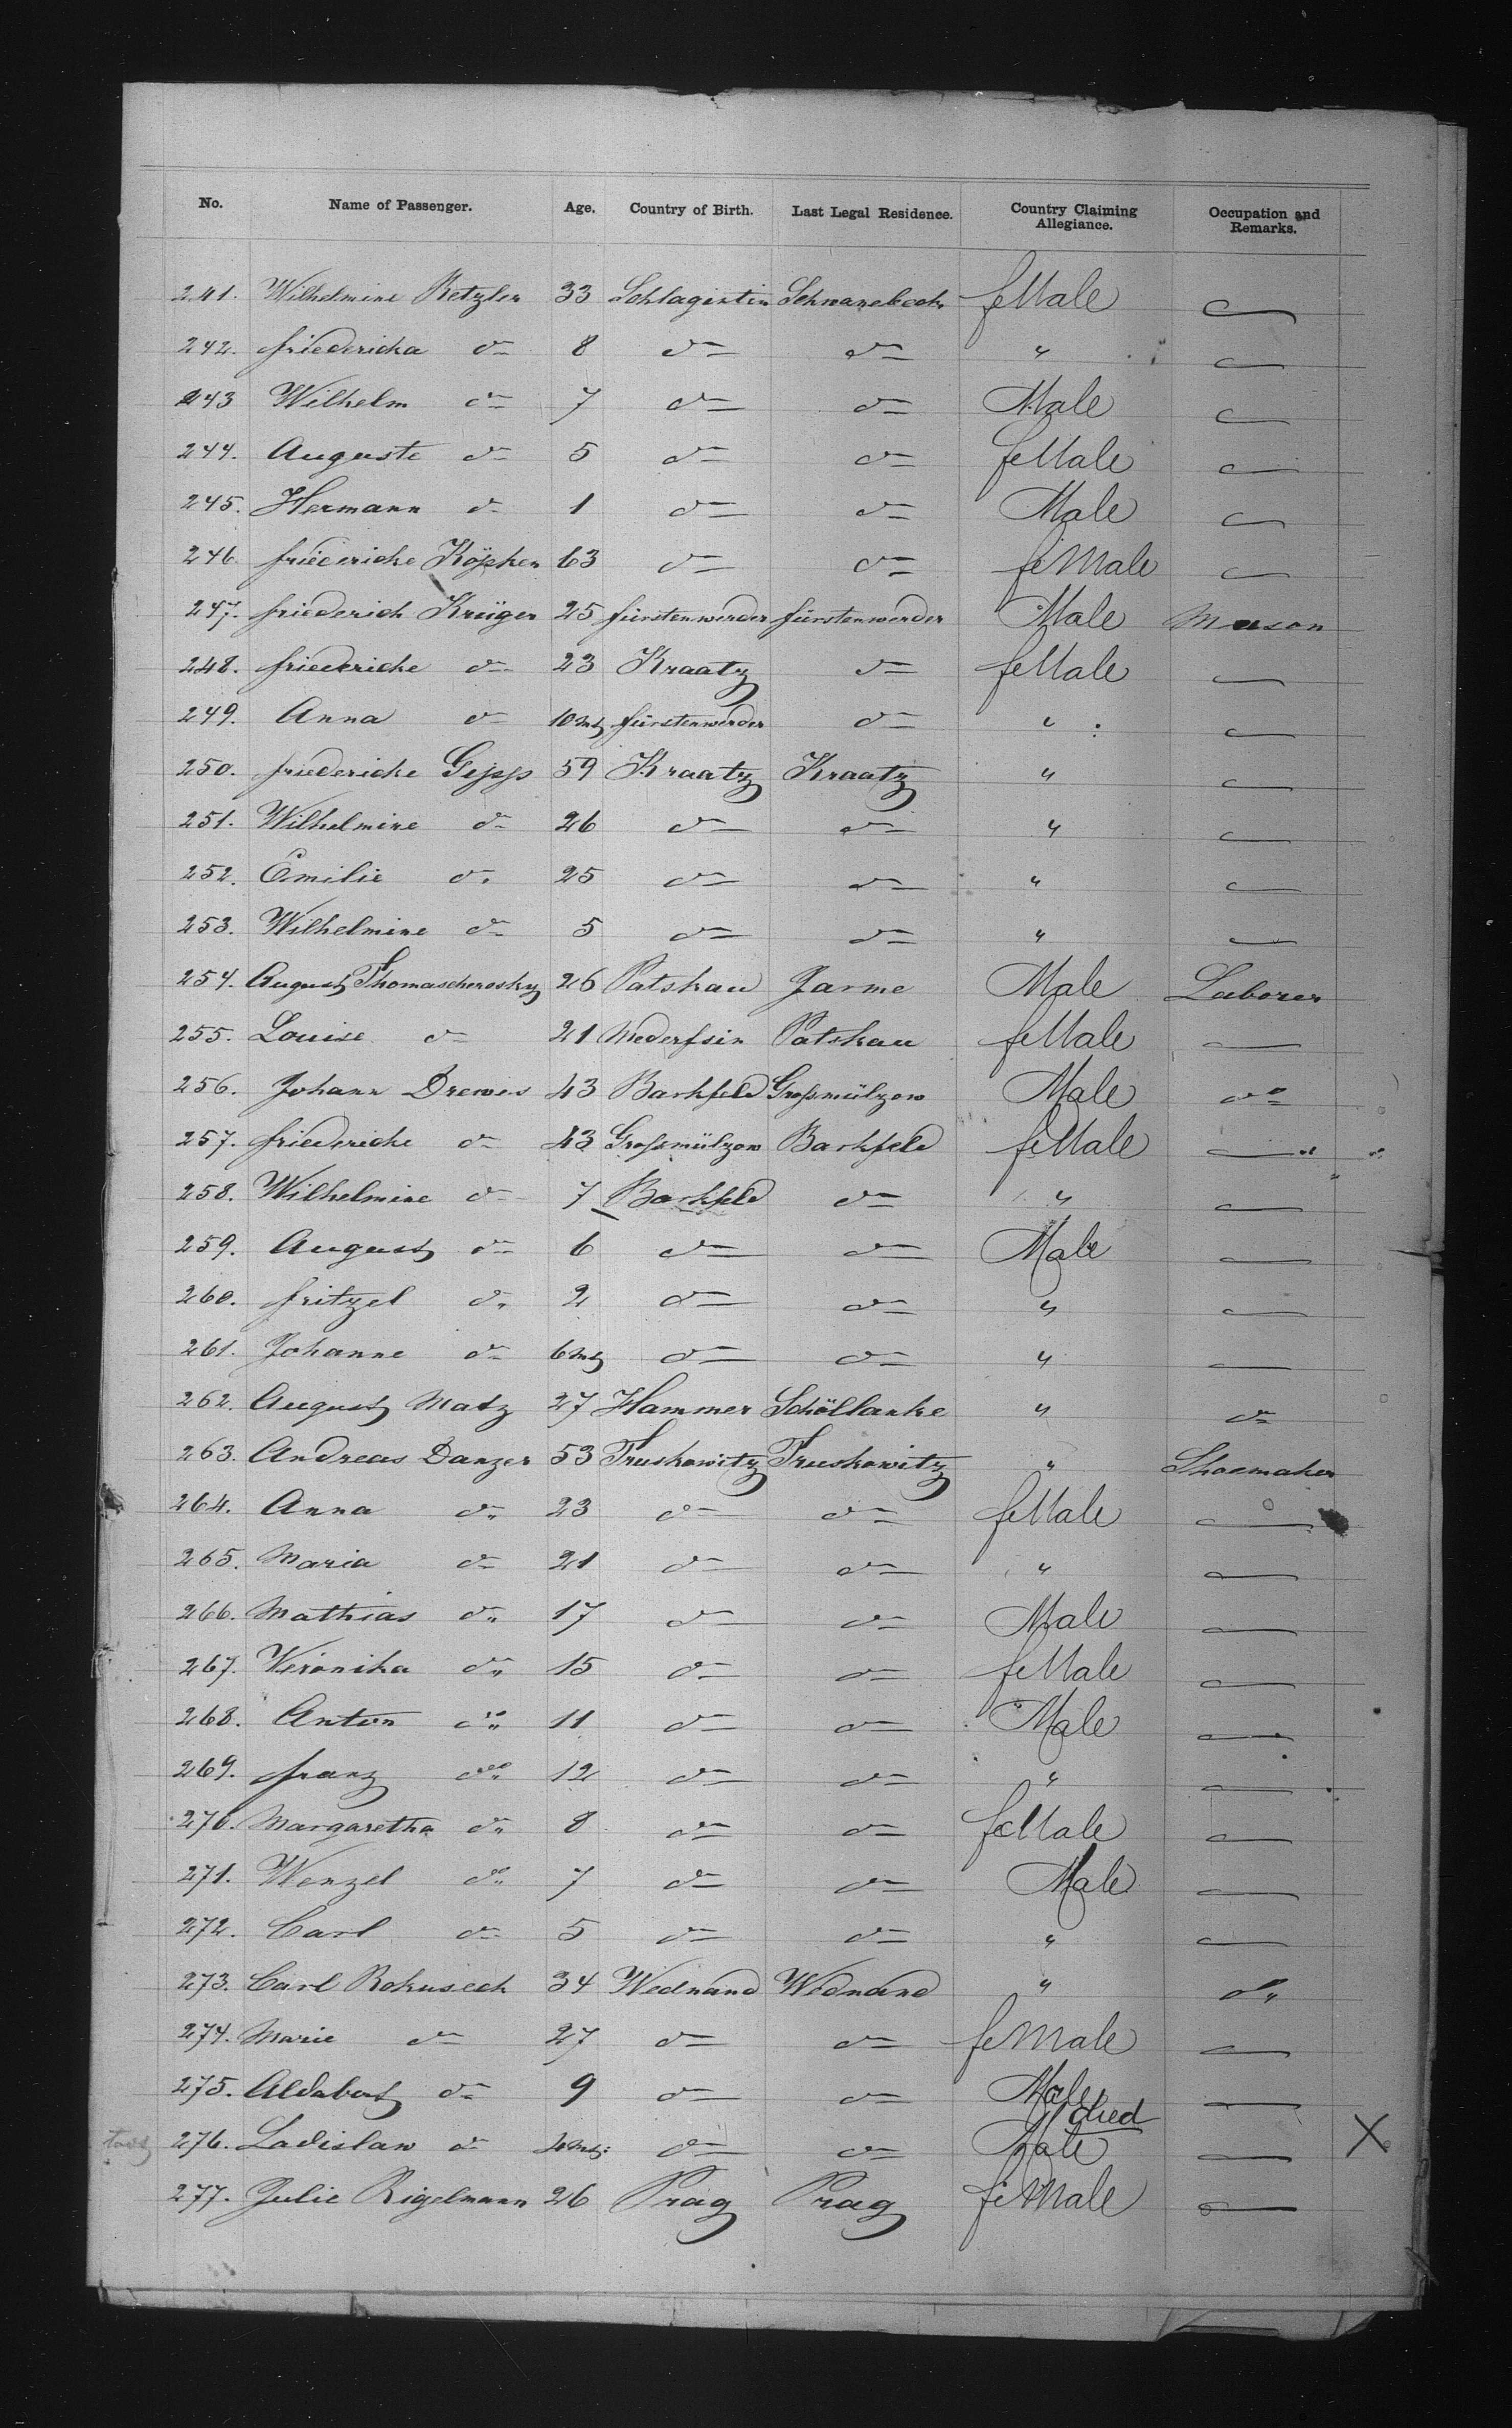 No. Name of Passenger. Age. Country of Birth. Last Legal Residence. Country Claiming Allegiance. Occupation and Remarks.
241. Wilhelmine Retzler 33 Schlagintin Schwanebeck feMale —
242. friedericka do 8 do do " —
243 Wilhelm do 7 do do Male —
244. Auguste do 5 do do feMale —
245. Hermann do 1 do do Male —
246. friedericke Köpken 63 do do feMale —
247. friederich Krüger 25 fürstenwerder fürstenwerder Male Mason
248. friedericke do 23 Kraatz do feMale —
249. Anna do 10 mt fürstenwerder do " —
250. friedericke 59 Kraatz Kraatz " —
251. Wilhelmine do 26 do do " —
252. Emilie do 25 do do " —
253. Wilhelmine do 5 do do " —
254. August Thomascherosky 26 Patskau Jarme Male Laborer
255. Louise do 21 Patskau feMale —
256. Johann Drewes 43 Barkfeld Großmülzow Male do
257. friedericke do 43 Großmülzow Barkfeld feMale —
258. Wilhelmine do 7 Barkfeld do " —
259. August do 6 do do Male —
260. fritzel do 2 do do " —
261. Johanne do 6 mt do do " —
262. August Matz 27 Hammer Schöllanke " do
263. Andreas Danzer 53 Truskowitz Truskowitz " Shoemaker
264. Anna do 23 do do feMale —
265. Maria do 21 do do " —
266. Mathias do 17 do do Male —
267. Veronika do 15 do do feMale —
268. Anton do 11 do do Male —
269. franz do 12 do do " —
270. Margaretha do 8 do do feMale —
271. Wenzel do 7 do do Male —
272. Carl do 5 do do " —
273. Carl Rokuseck 34 Wednand Wednand " do
274. Marie do 27 do do feMale —
275. Aldabert do 9 do do Male —
276. Ladislaw do 4 mt: do do Male died — X
277. Julie Rigelmann 26 Prag Prag feMale —